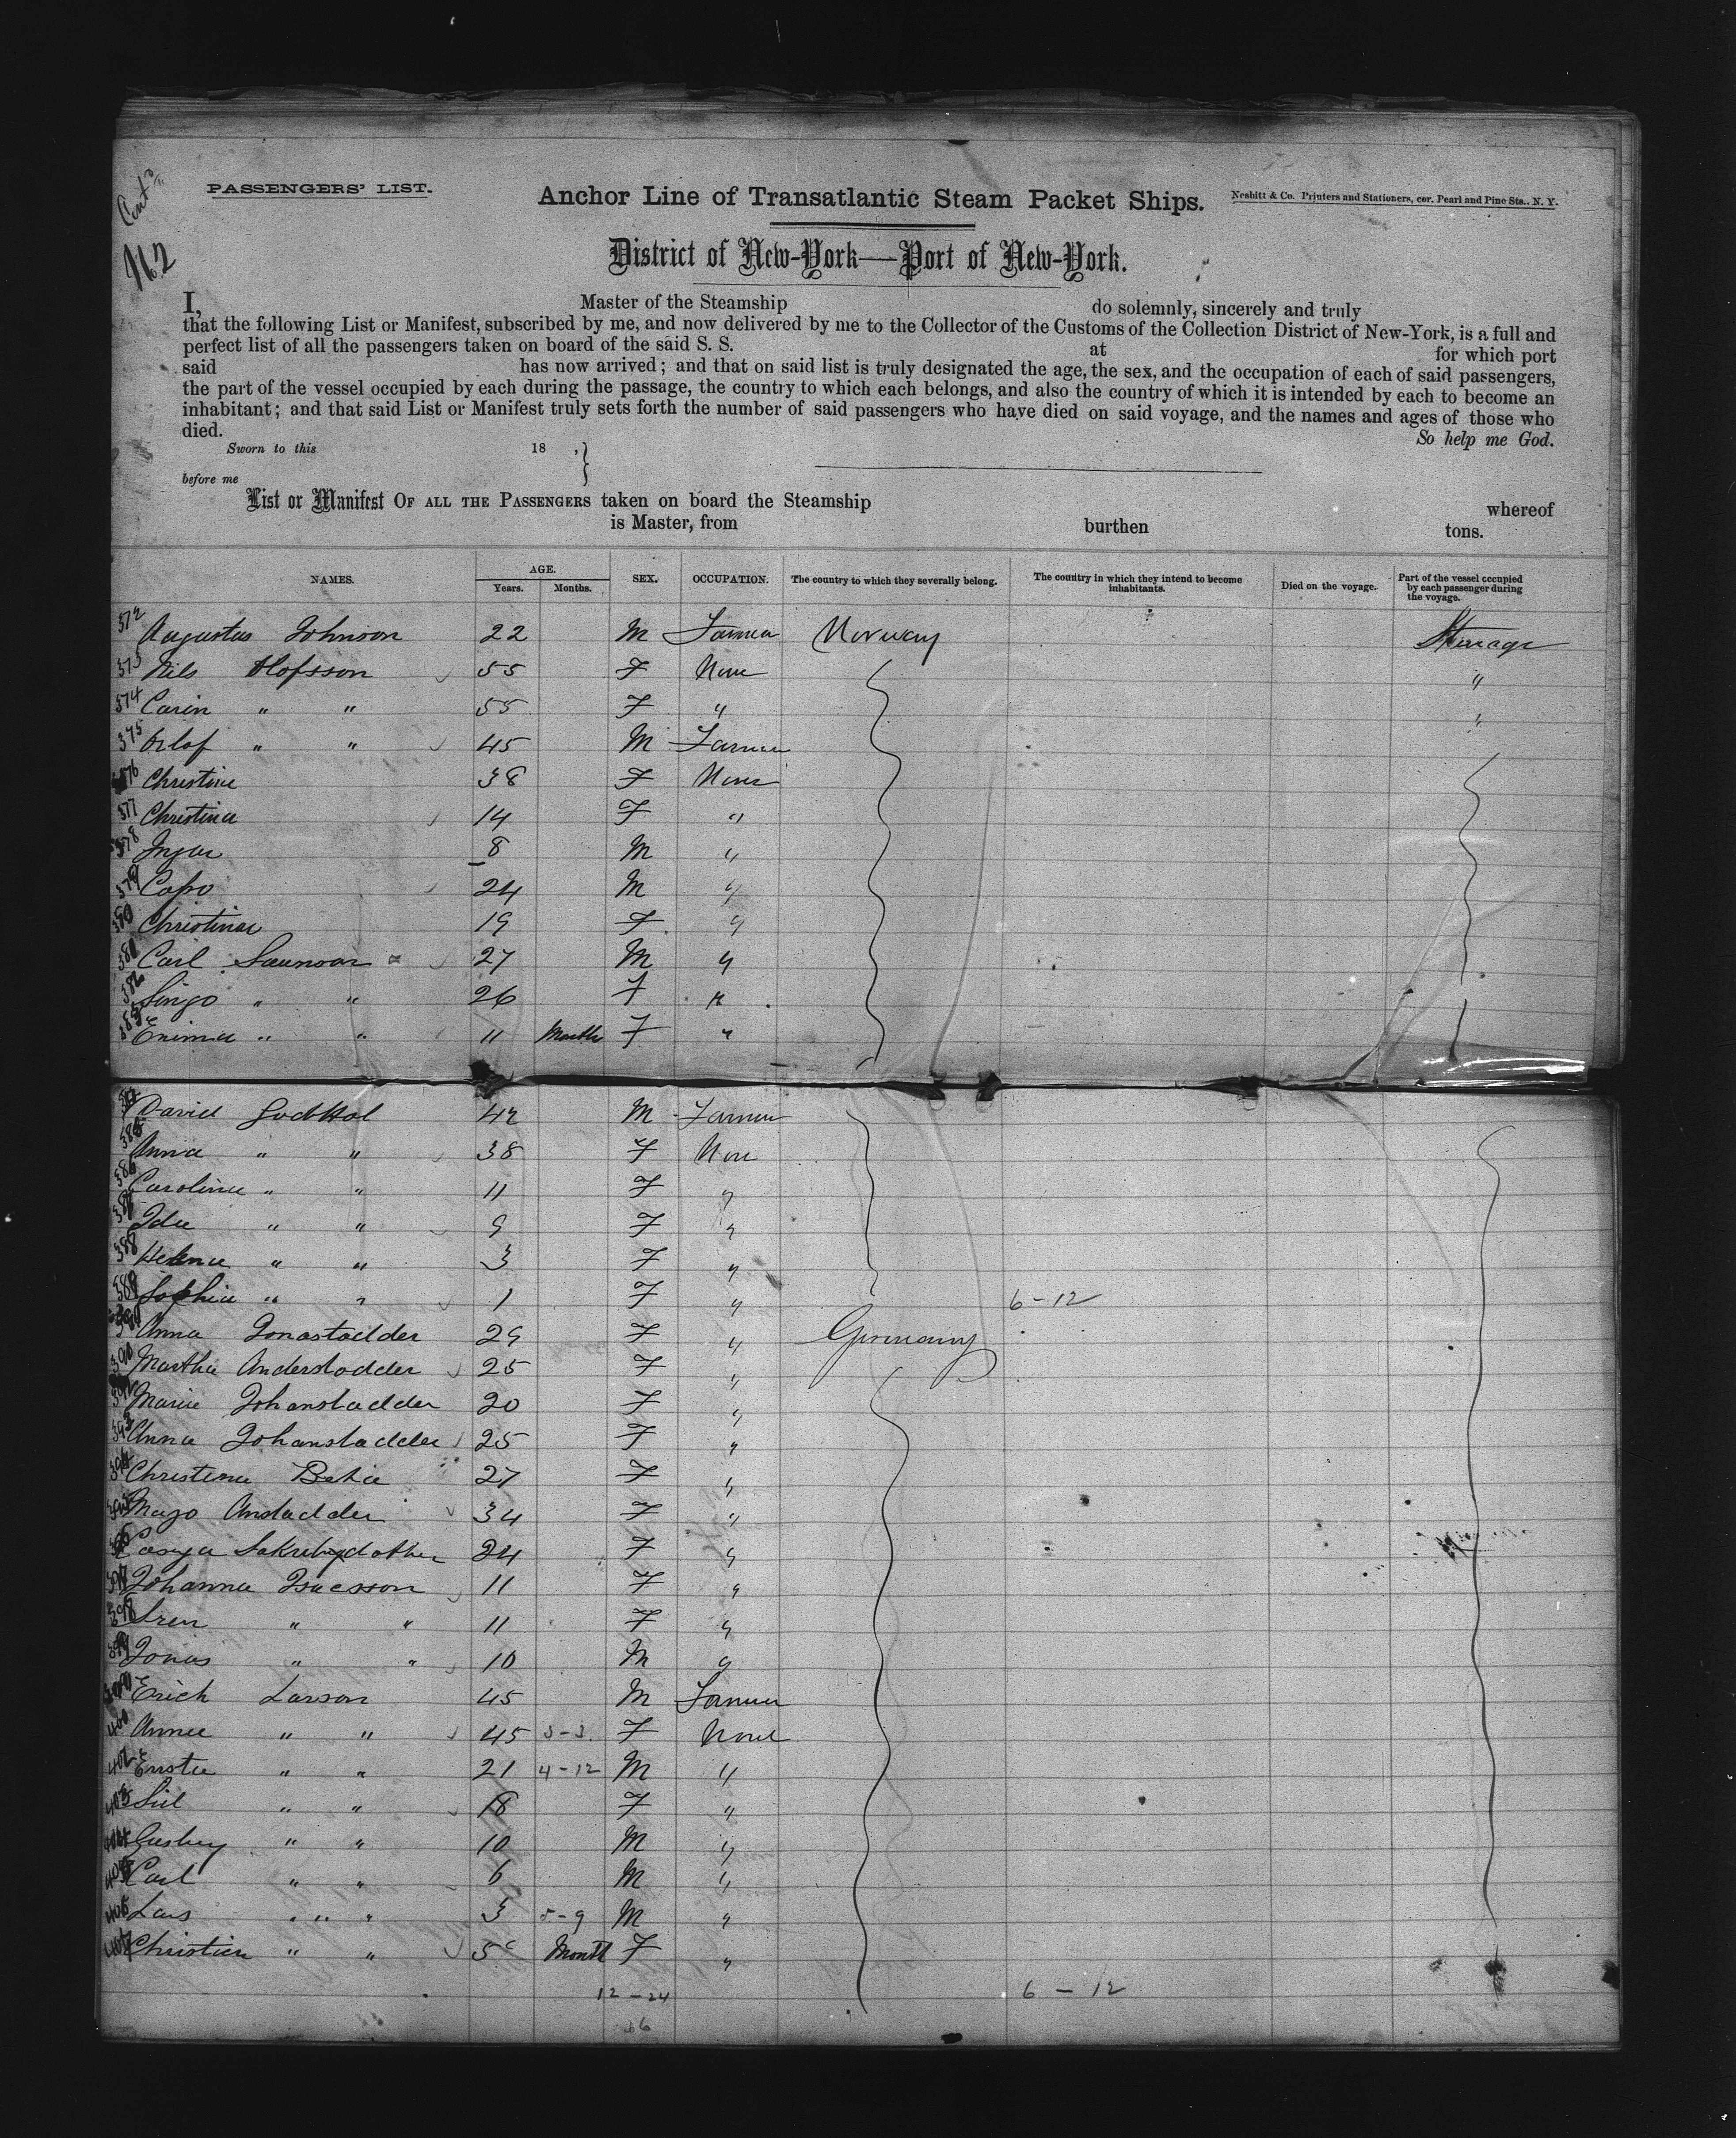 Cont'd
162
PASSENGERS' LIST.
Anchor Line of Transatlantic Steam Packet Ships.
Nesbitt & Co. Printers and Stationers, cor. Pearl and Pine Sts., N. Y.
District of New-York—Port of New-York.
I, Master of the Steamship do solemnly, sincerely and truly
that the following List or Manifest, subscribed by me, and now delivered by me to the Collector of the Customs of the Collection District of New-York, is a full and
perfect list of all the passengers taken on board of the said S. S. at for which port
said has now arrived; and that on said list is truly designated the age, the sex, and the occupation of each of said passengers,
the part of the vessel occupied by each during the passage, the country to which each belongs, and also the country of which it is intended by each to become an
inhabitant; and that said List or Manifest truly sets forth the number of said passengers who have died on said voyage, and the names and ages of those who
died. So help me God.
Sworn to this 18 ,
before me
List or Manifest OF ALL THE PASSENGERS taken on board the Steamship whereof
is Master, from burthen tons.
NAMES. AGE. Years. Months. SEX. OCCUPATION. The country to which they severally belong. The country in which they intend to become inhabitants. Died on the voyage. Part of the vessel occupied by each passenger during the voyage.
372 Augustus Johnson 22 M Farmer Norway Steerage
373 Nils Olofsson 55 F None "
374 Carin " " 55 F " "
375 Orlof " " 45 M Farmer
376 Christine 38 F None
377 Christina 14 F "
378 8 M "
379 24 M "
380 Christina 19 F "
381 Carl 27 M "
382 " " 26 F "
383 Emma " " 11 Months F "
384 David 42 M Farmer
385 Anna " " 38 F None
386 Carolina " " 11 F "
387 Ida " " 9 F "
388 Helena " " 3 F "
389 Sophia " " 1 F " 6-12
390 Anna Jonastadder 29 F " Germany
391 Martha Anderstodder 25 F "
392 Marie Johanstadder 20 F "
393 Anna Johanstadder 25 F "
394 Christina 27 F "
395 Mayo Anstadder 34 F "
396 24 F "
397 Johanna Isaesson 11 F "
398 " " 11 F "
399 Jonas " " 10 M "
400 Erich Larson 45 M Farmer
401 Anna " " 45 3-3 F None
402 " " 21 4-12 M "
403 " " 18 F "
404 " " 10 M "
405 Carl " " 6 M "
406 Lars " " 3 5-9 M "
407 Christien " " 5 Month F "
12-24 6-12
36